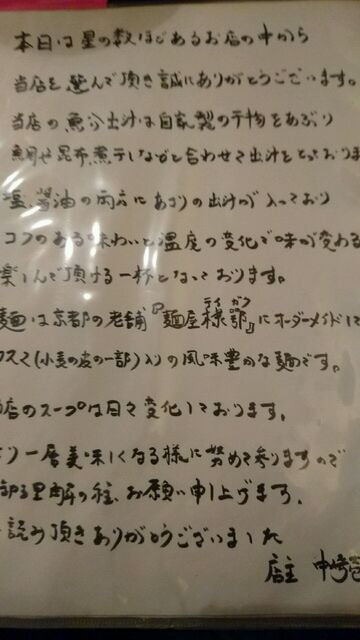 本日は星の数ほどあるお店の中から
当店を選んで頂き誠にありがとうございます。
当店の魚介出汁は自家製の干物をあぶり
鯛や昆布、煮干しなどと合わせて出汁をとっておりま
塩、醤油の両方にあぶりの出汁が入っており
コクのある味わいと温度の変化で味が変わる
楽しんで頂ける一杯となっております。
麺は京都の老舗『麺屋棣鄂』にオーダーメイドして
フスマ(小麦の皮の一部)入りの風味豊かな麺です。
店のスープは日々変化しております。
り一層美味しくなる様に努めて参りますので
理解の程、お願い申し上げます。
読み頂きありがとうございました
店主 中崎